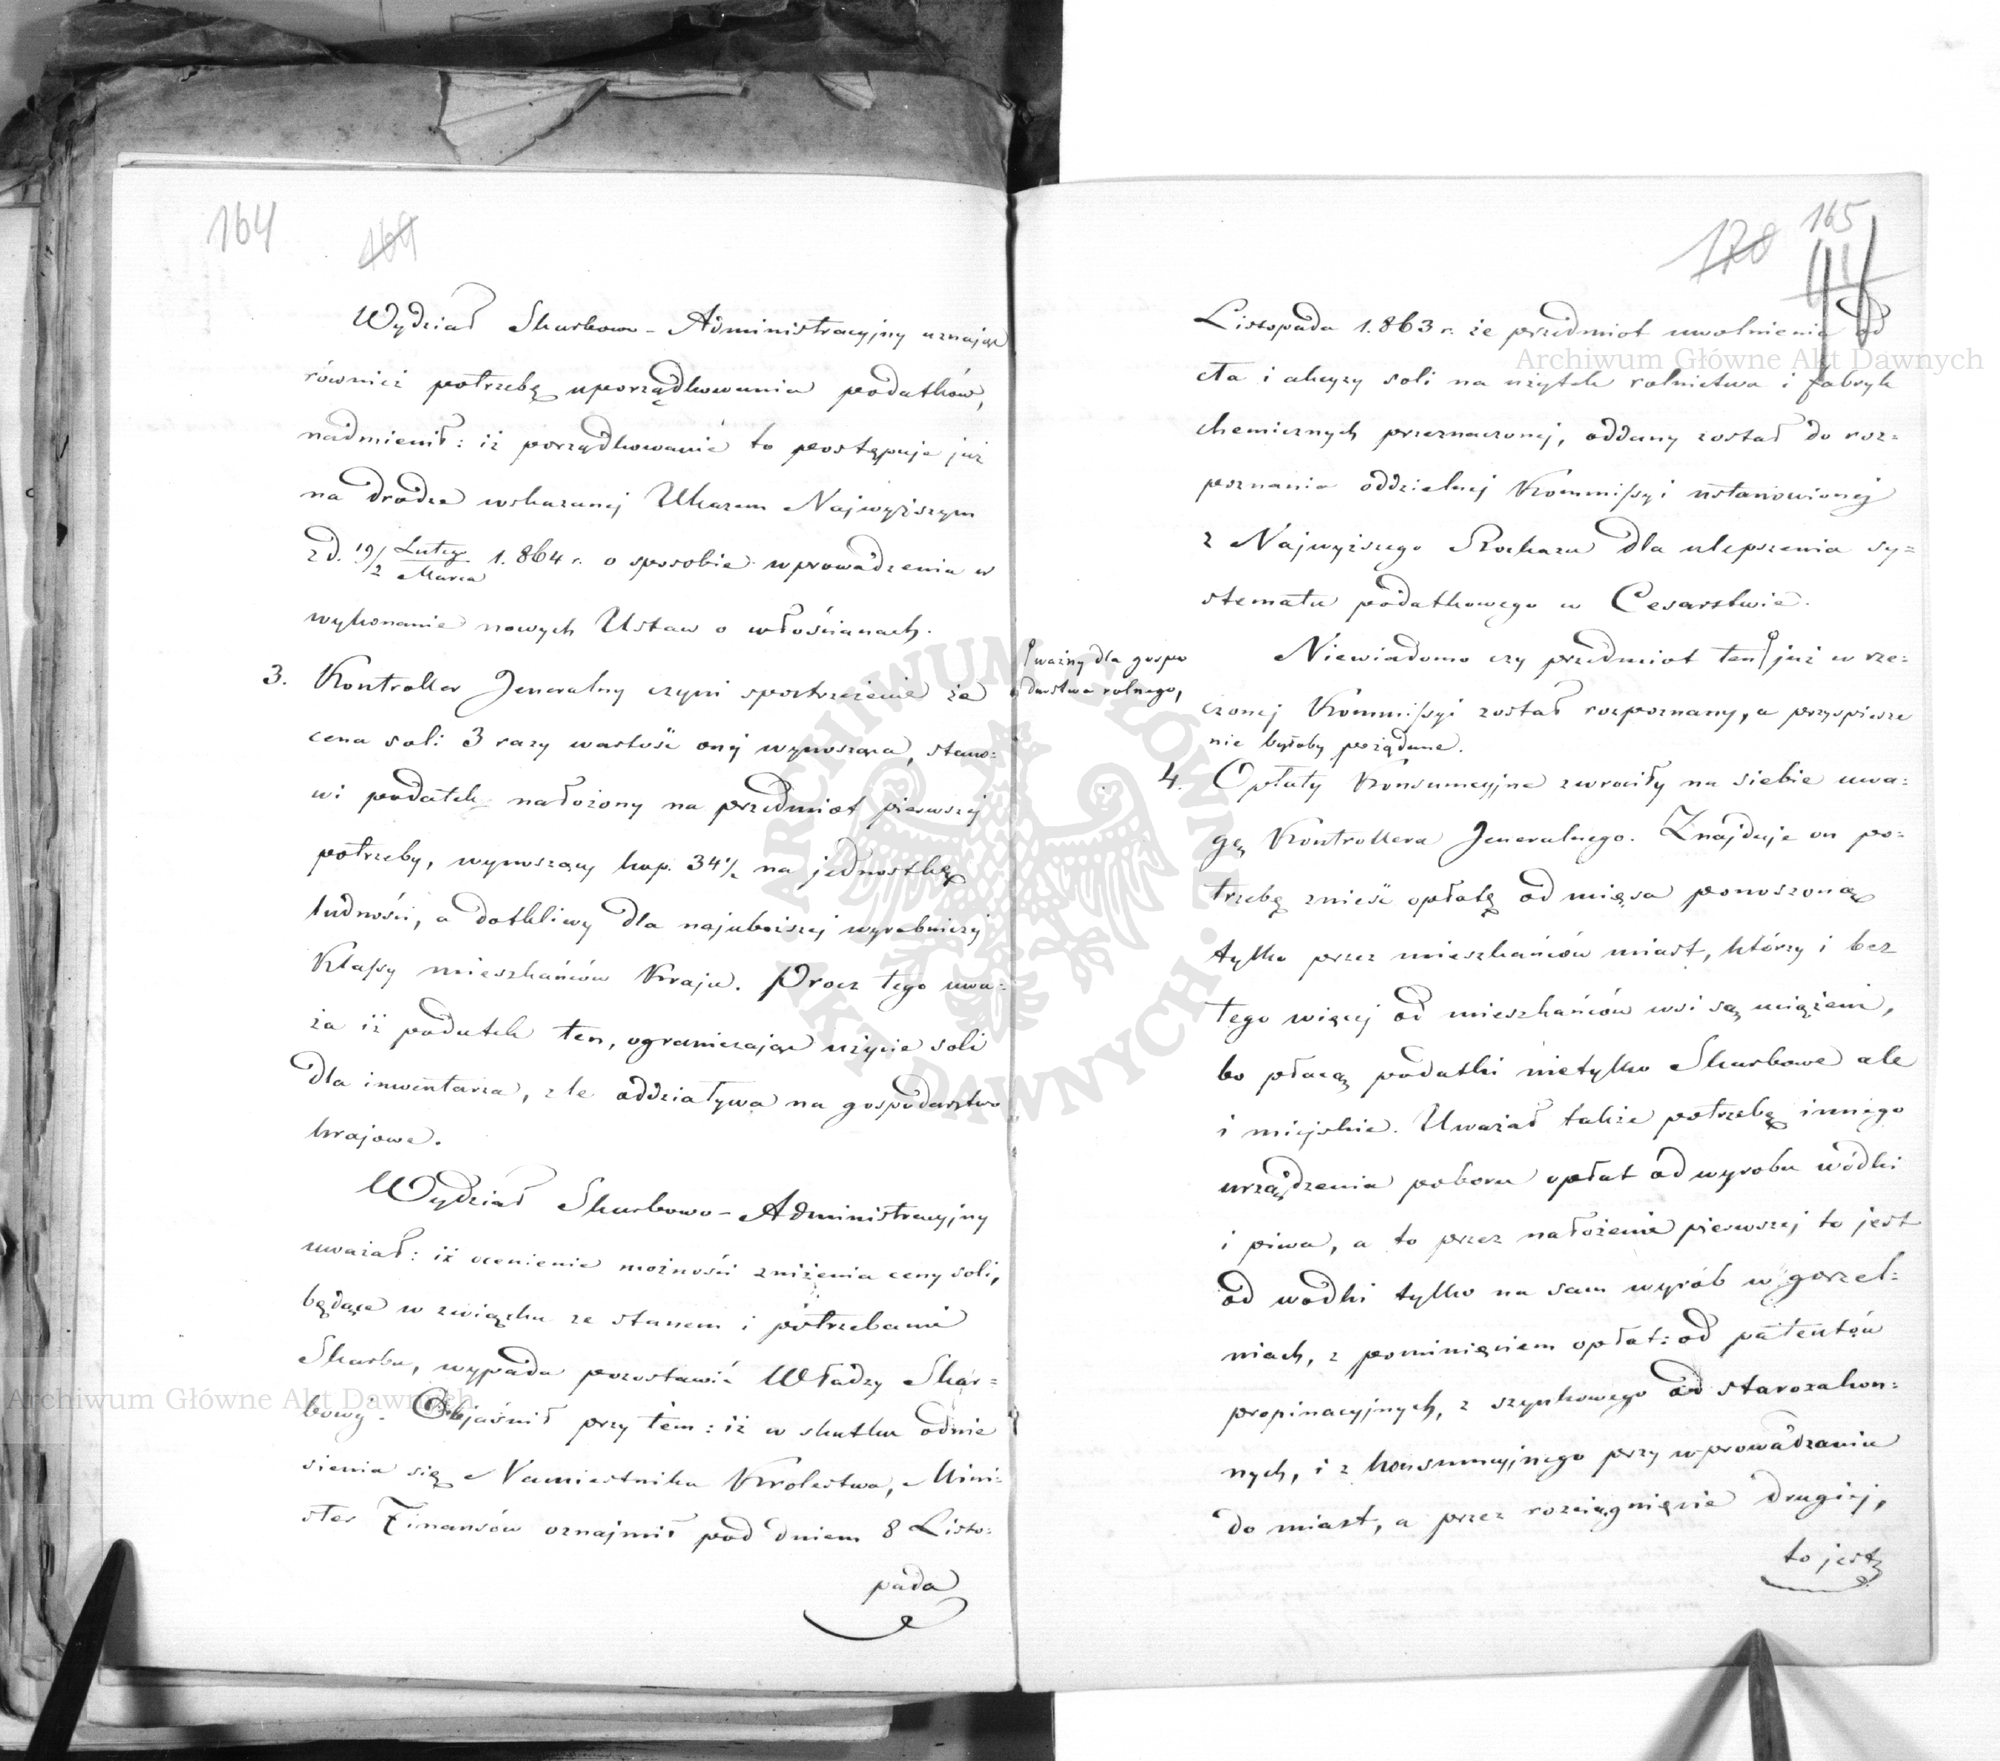 164
169
Wydział Skarbowo-Administracyjny uznając
również potrzebę uporządkowania podatków,
nadmienił: iż porządkowanie to postępuje już
na drodze wskazanej Ukazem Najwyższym
z d. 19/2 Lutego/Marca 1.864 r. o sposobie wprowadzenia w
wykonanie nowych Ustaw o włościanach.
3. Kontroller Jeneralny czyni spostrzeżenie że
cena soli 3 razy wartość onej wynosząca, stano-
wi podatek nałożony na przedmiot pierwszej
potrzeby, wynoszący kop. 34½ na jednostkę
ludności, a dotkliwy dla najuboższej wyrobniczej
Klassy mieszkańców Kraju. Prócz tego uwa-
ża iż podatek ten, ograniczając użycie soli
dla inwentarza, źle oddziaływa na gospodarstwo
krajowe.
Wydział Skarbowo-Administracyjny
uważał: iż ocenienie możności zniżenia ceny soli,
będące w związku ze stanem i potrzebami
Skarbu, wypada pozostawić Władzy Skar=
bowej. Objaśnił przy tem: iż w skutku odnie
sienia się Namiestnika Królestwa, Mini-
ster Finansów oznajmił pod dniem 8 Listo-
pada
165
170
Listopada 1.863 r. że przedmiot uwolnienia od
cła i akcyzy soli na użytek rolnictwa i fabryk
chemicznych przeznaczonej, oddany został do roz=
poznania oddzielnej Kommissyi ustanowionej
z Najwyższego Rozkazu dla ulepszenia sy=
stematu podatkowego w Cesarstwie.
Niewiadomo czy przedmiot ten już w rze-
ważny dla gospo
darstwa rolnego,
czonej Kommissyi został rozpoznany, a przyspiesze
nie byłoby pożądane.
4. Opłaty Konsumcyjne zwróciły na siebie uwa-
gę Kontrollera Jeneralnego. Znajduje on po-
trzebę znieść opłatę od mięsa ponoszoną
tylko przez mieszkańców miast, którzy i bez
tego więcej od mieszkańców wsi są uciążeni,
bo płacą podatki nietylko Skarbowe ale
i miejskie. Uważał także potrzebę innego
urządzenia poboru opłat od wyrobu wódki
i piwa, a to przez nałożenie pierwszej to jest
od wódki tylko na sam wyrób w gorzel-
niach, z pominięciem opłat: od patentów
propinacyjnych, z szynkowego od starozakon-
nych, i z konsumcyjnego przy wprowadzaniu
do miast, a przez rozciągnięcie drugiej,
to jest
Archiwum Główne Akt Dawnych
Archiwum Główne Akt Dawnych
ARCHIWUM GŁÓWNE AKT DAWNYCH